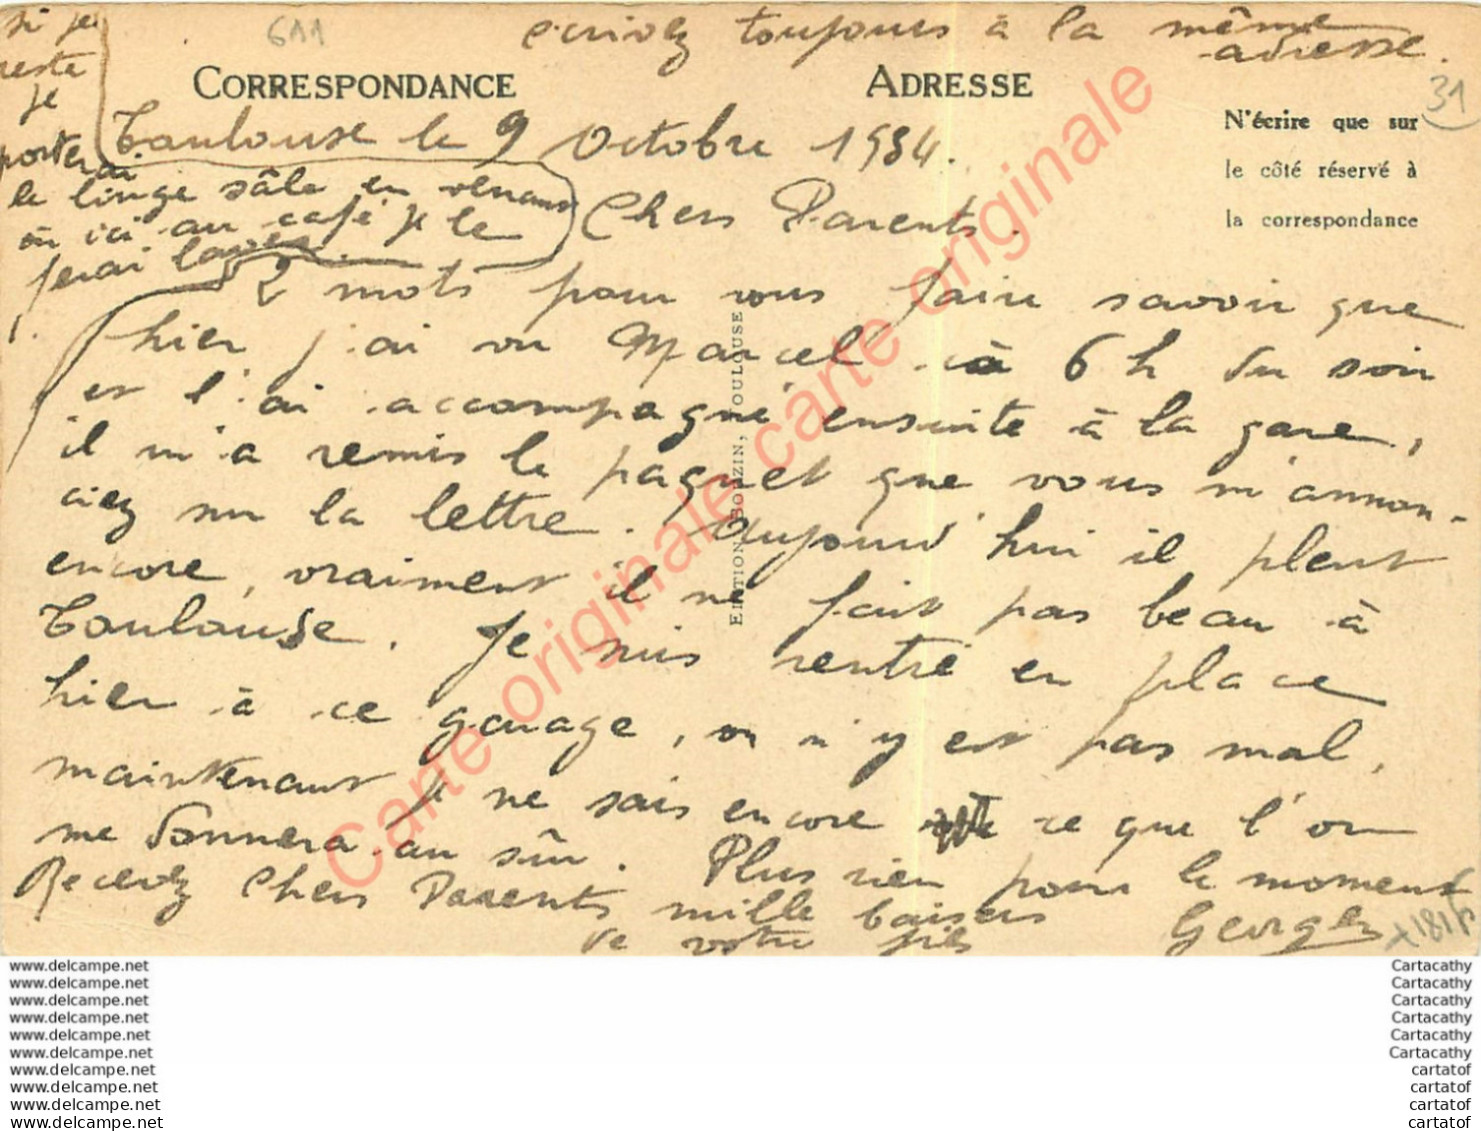 écrivez toujours à la même
adresse.
611
31
CORRESPONDANCE
ADRESSE
N'écrire que sur
le côté réservé à
la correspondance
Toulouse le 9 Octobre 1934.
Chers Parents.
2 mots pour vous faire savoir que
hier j'ai vu Marcel à 6 h du soir
et l'ai accompagné ensuite à la gare,
il m'a remis le paquet que vous m'annon-
ciez sur la lettre. Aujourd'hui il pleut
encore, vraiment il ne fait pas beau à
Toulouse. Je suis rentré en place
hier à ce garage, on n'y est pas mal,
maintenant je ne sais encore ce que l'on
me donnera au sûr. Plus rien pour le moment
Recevez Chers Parents mille baisers
de votre fils Georges
si je
reste
je
porterai
le linge sâle en venant
ou ici au café je le
ferai laver.
EDITION BOUZIN, TOULOUSE
Carte originale carte originale
www.delcampe.net
www.delcampe.net
www.delcampe.net
www.delcampe.net
www.delcampe.net
www.delcampe.net
www.delcampe.net
www.delcampe.net
www.delcampe.net
www.delcampe.net
Cartacathy
Cartacathy
Cartacathy
Cartacathy
Cartacathy
Cartacathy
cartatof
cartatof
cartatof
cartatof